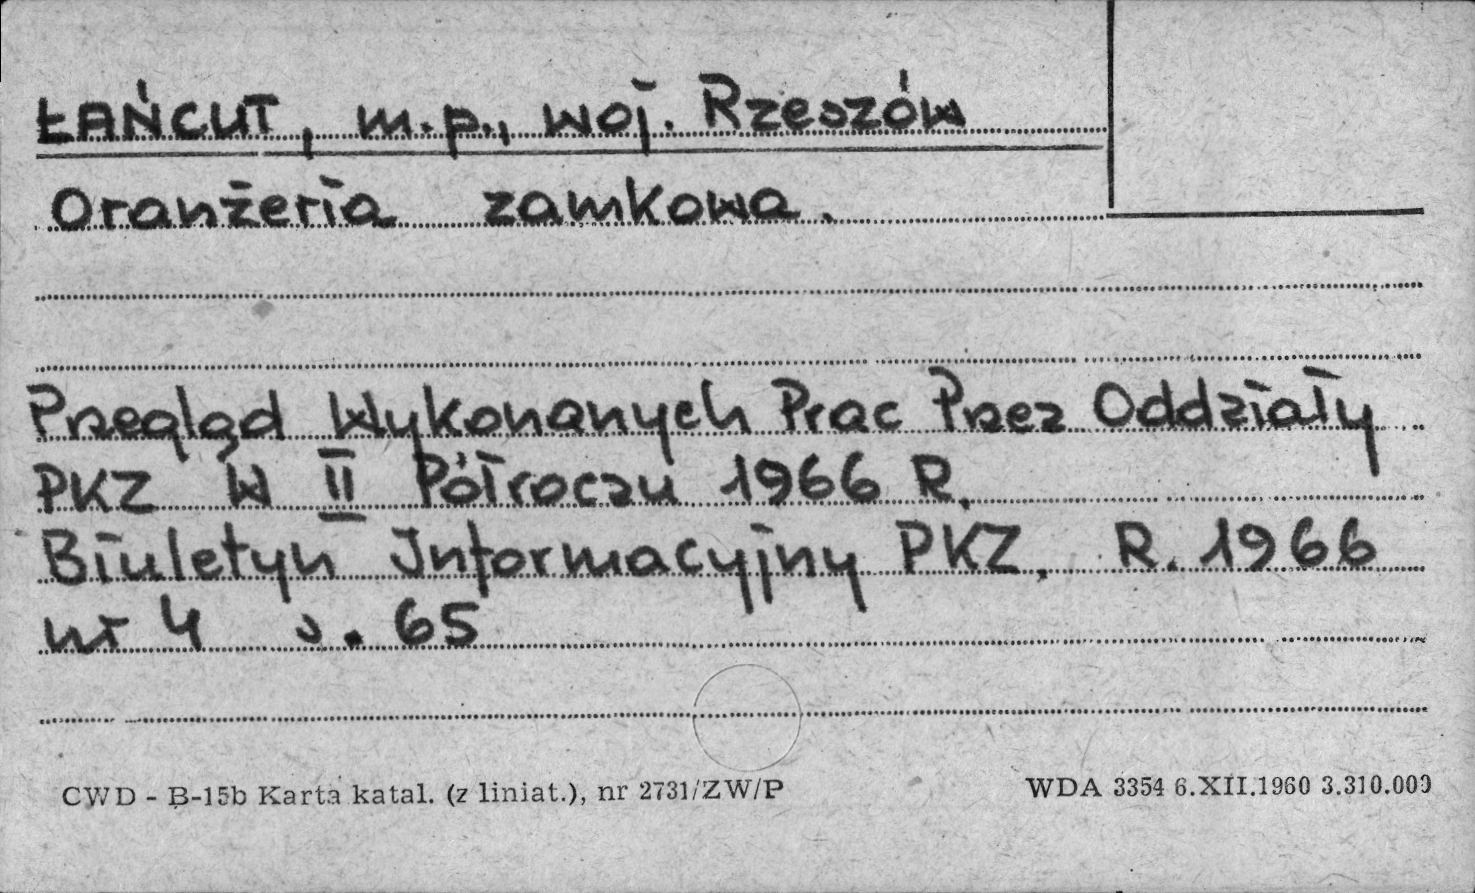 ŁAŃCUT, m.p., woj. Rzeszów
Oranżeria zamkowa.
Przegląd Wykonanych Prac Przez Oddziały
PKZ W II Półroczu 1966 R.
Biuletyn Informacyjny PKZ, R. 1966
nr 4 s. 65
CWD - B-15b Karta katal. (z liniat.), nr 2731/ZW/P
WDA 3354 6.XII.1960 3.310.000